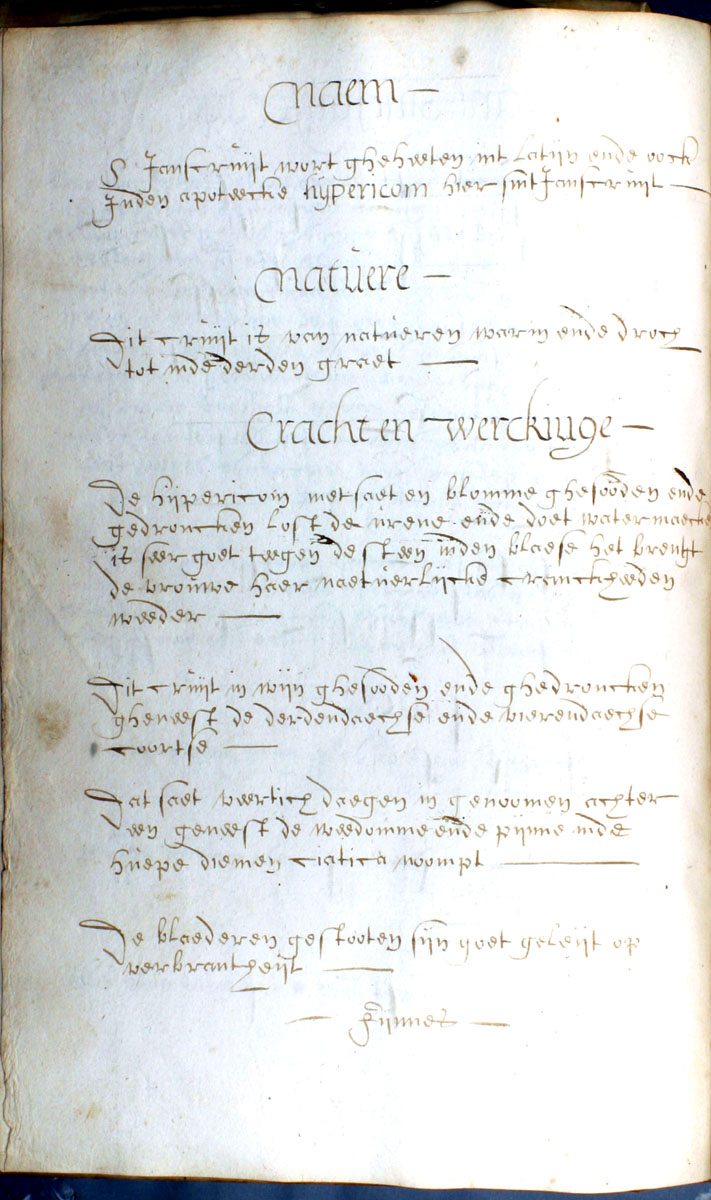 Naem —
S Janscruijt wort gheheeten int latijn ende oock
Inden apoteecke hÿpericom hier sint Janscruijt —
Natuere —
Dit cruijt is van natueren warm ende drooch
tot inde derden graet —
Cracht en werckinge —
De hijpericom met saet en blomme ghesooden ende
gedroncken lost de urene ende doet water maecke
is seer goet teegen de steen inden blaese het brengt
de vrouwe haer naetuerlijcke cranckheeden
weeder —
Dit cruijt in wijn ghesooden ende ghedroncken
gheneest de derdendaechse ende vierendaechse
coortse —
Dat saet veertich daegen in genoomen achter
een geneest de weedomme ende pijnne inde
huepe diemen ciatica noompt —
De blaederen gestooten sijn goet geleijt op
verbrantheijt —
— Fijnnes —